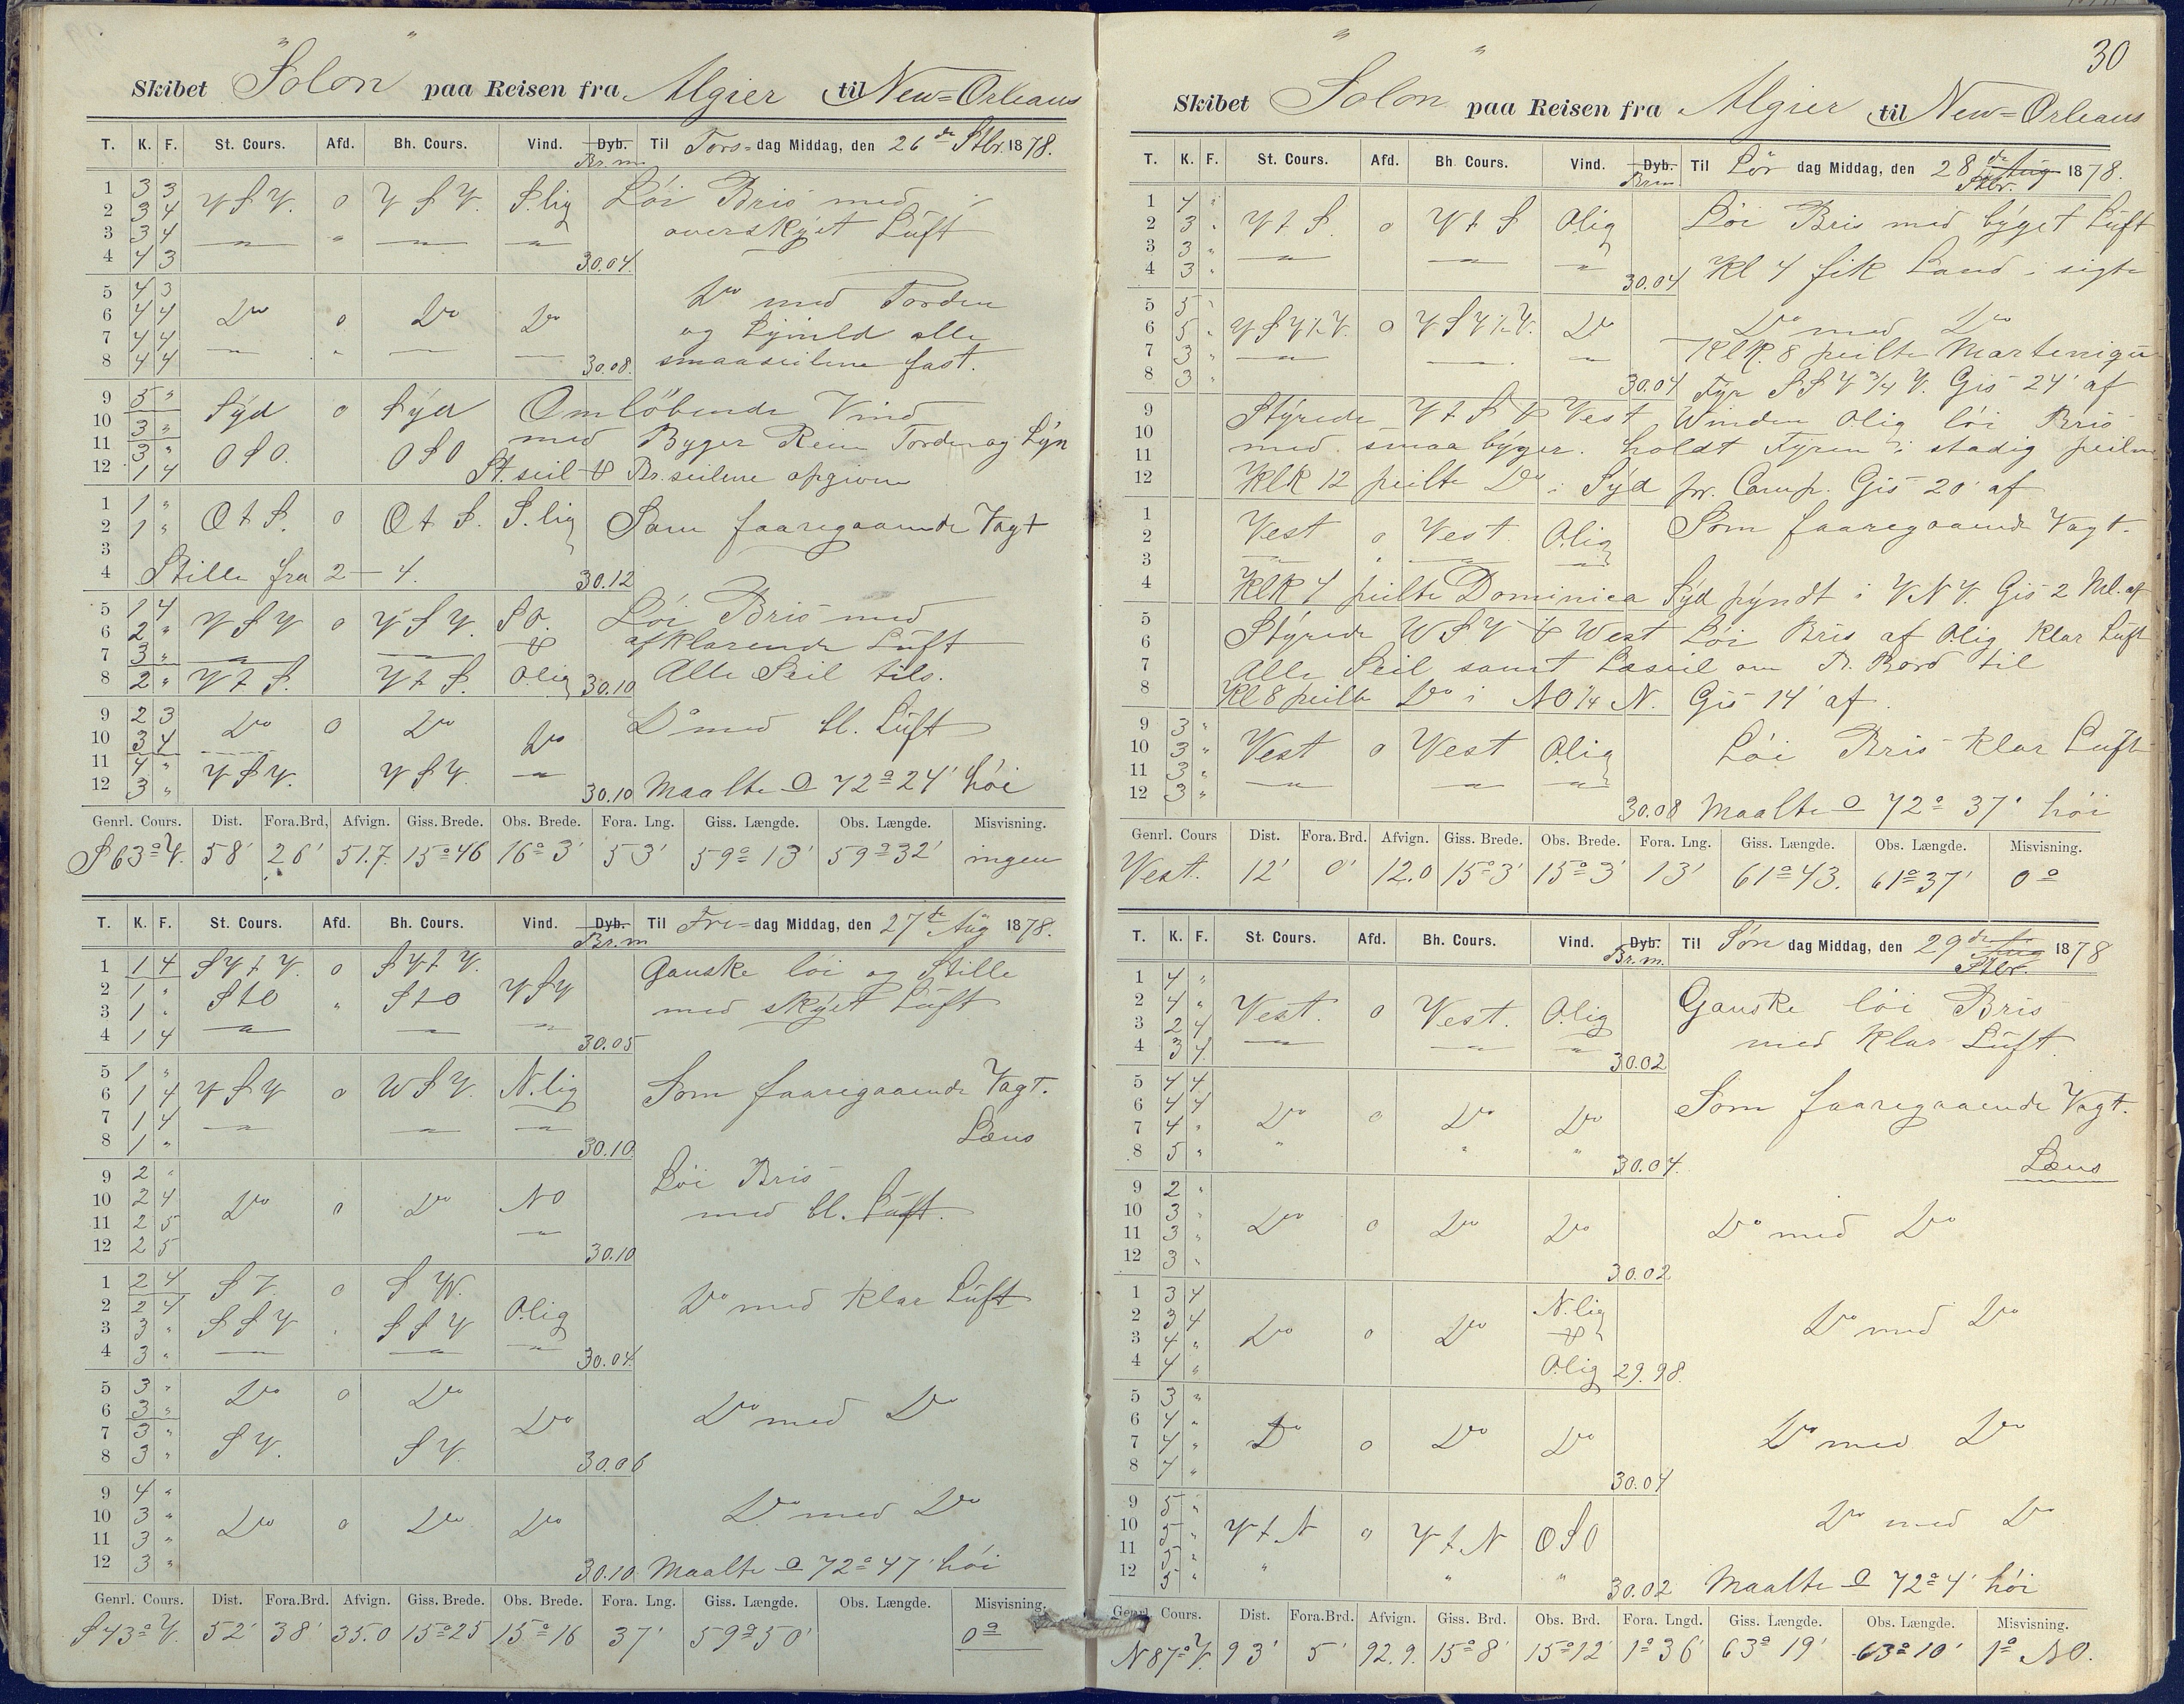 Skibet "Solon" paa Reisen fra Algier til New=Orleans
T. K. F. St. Cours. Afd. Bh. Cours. Vind. Dyb. Til Tors=dag Middag, den 26de Stbr. 1878.
Br.m.
1 3 3
2 3 4 V S V. o V S V. S.lig Löi Bris med
3 3 4 " " " " overskÿet Lüft
4 4 3 30.04.
5 4 3
6 4 4 Do o Do Do Do med Torden
7 4 4 og Lÿnild alle
8 4 4 30.08. smaaseilene fast.
9 5 " Sÿd o Sÿd Omlöbende Vind
10 3 " med Byger Rein Torden og Lÿn
11 3 " O S O. O S O
12 1 4 St. seil & Br. seilene opgiven
1 1 "
2 1 " O t S. o O t S. S.lig Som faaregaaende Vagt
3
4 Stille fra 2 — 4. 30.12
5 1 4 V S V o V S V. S O. Löi Bris med
6 2 " & afklarende Lüft
7 3 "
8 2 " V t S. V t S. Olig 30.10 Alle Seil tils.
9 2 3 Do o Do Do med bl. Lüft
10 3 4 Do
11 4 " V S V. V S V. "
12 3 " 30.10 Maalte O 72° 24' höi
Genrl. Cours. Dist. Fora.Brd, Afvign. Giss. Brede. Obs. Brede. Fora. Lng. Giss. Længde. Obs. Længde. Misvisning.
S 63° V. 58' 26' 51.7. 15° 46 16° 3' 53' 59° 13' 59° 32' ingen
T. K. F. St. Cours. Afd. Bh. Cours. Vind. Dyb. Til Fre=dag Middag, den 27de Aüg 1878.
Br.m
1 1 4 S V t V. o S V t V. Ganske löi og Stille
2 1 " S t O " S t O V S V
3 1 " med skÿet Lüft
4 1 4 " " " 30.05
5 1 "
6 1 4 V S V o W S V. N.lig Som faaregaaende Vagt.
7 1 4 " " "
8 1 " 30.10. Læns
9 2 " Löi Bris
10 2 4 Do o Do N O
11 2 5 " med bl. Lüft.
12 2 5 30.10
1 2 4 S V. o S W.
2 2 4 Olig Do med Klar Lüft
3 3 " S S V " S S V
4 3 " " " " 30.04.
5 3 " Do o Do
6 3 " Do Do med Do
7 3 "
8 3 " S V. S V. 30.06
9 4 "
10 3 " Do o Do Do Do med Do
11 3 "
12 3 " 30.10. Maalte O 72° 47' höi
Genrl. Cours. Dist. Fora.Brd. Afvign. Giss. Brede. Obs. Brede. Fora. Lng. Giss. Længde. Obs. Længde. Misvisning.
S 43° V. 52' 38' 35.0 15° 25 15° 16 37' 59° 50' 0°
30
Skibet "Solon" paa Reisen fra Algier til New=Orleans
T. K. F. St. Cours. Afd. Bh. Cours. Vind. Dyb. Til Lör dag Middag, den 28de Aug 1878.
Br.m Stbr.
1 4 "
2 3 " V t S. o V t S Olig Löi Bris med bÿget Lüft
3 3 " " " "
4 3 " 30.04 Kl 4 fik Land i sigte
5 5 "
6 5 " V S V ½ V. o V S V ½ V. Do Do med Do
7 3 " " " " Klk. 8 peilte Martenique
8 3 " 30.04 Fyr S S V ¾ V. Gis 24' af
9 Stÿrede V t S & Vest Winden Olig löi Bris
10 med smaa bÿger. holdt Fyren i stadig peilin
11
12 Klk 12 peilte Do i Sÿd pr. Comp. Gis 20' af
1 Som faaregaaende Vagt.
2 Vest o Vest. Olig
3 " " " "
4 Klk 4 peilte Dominica Sÿd pÿndt i V N V. Gis 2 Mil. af
5 Stÿrede W S V & West Löi Bris af Olig Klar Lüft
6
7 Alle Seil samt Læseil om B. Bord til
8 Kl 8 peilte Do i N O ¼ N. Gis 14' af.
9 3 "
10 3 " Vest o Vest Olig Löi Bris Klar Lüft
11 3 " " " "
12 3 " 30.08 Maalte O 72° 37' höi
Genrl. Cours Dist. Fora.Brd. Afvign. Giss. Brede. Obs. Brede. Fora. Lng. Giss. Længde. Obs. Længde. Misvisning.
Vest. 12' 0' 12.0 15° 3' 15° 3' 13' 61° 43. 61° 37' 0°
T. K. F. St. Cours. Afd. Bh. Cours. Vind. Dyb. Til Søn dag Middag, den 29de Aug 1878
Br.m. Stbr.
1 4 "
2 4 " Vest. o Vest. Olig Ganske löi Bris
3 2 4 " " "
4 3 4. 30.02 med Klar Lüft.
5 4 4
6 4 4 Do o Do Do Som faaregaaende Vagt.
7 4 "
8 5 " " " " 30.04. Læns
9 2 "
10 3 " Do o Do Do Do med Do
11 3 "
12 3 " 30.02
1 3 4 N.lig
2 3 4 Do o Do & Do med Do
3 4 "
4 4 " Olig 29.98.
5 3 "
6 4 " Do o Do Do Do med Do
7 4 "
8 4 " 30.04
9 5 "
10 5 " V t N o V t N O S O Do med Do
11 5 "
12 5 " " " " 30.02 Maalte O 72° 4' höi
Genrl. Cours. Dist. Fora.Brd. Afvign. Giss. Brd. Obs. Brd. Fora. Lngd. Giss. Længde. Obs. Længde. Misvisning.
N 87° V. 93' 5' 92.9. 15° 8' 15° 12' 1° 36' 63° 19' 63° 10' 1° NO.